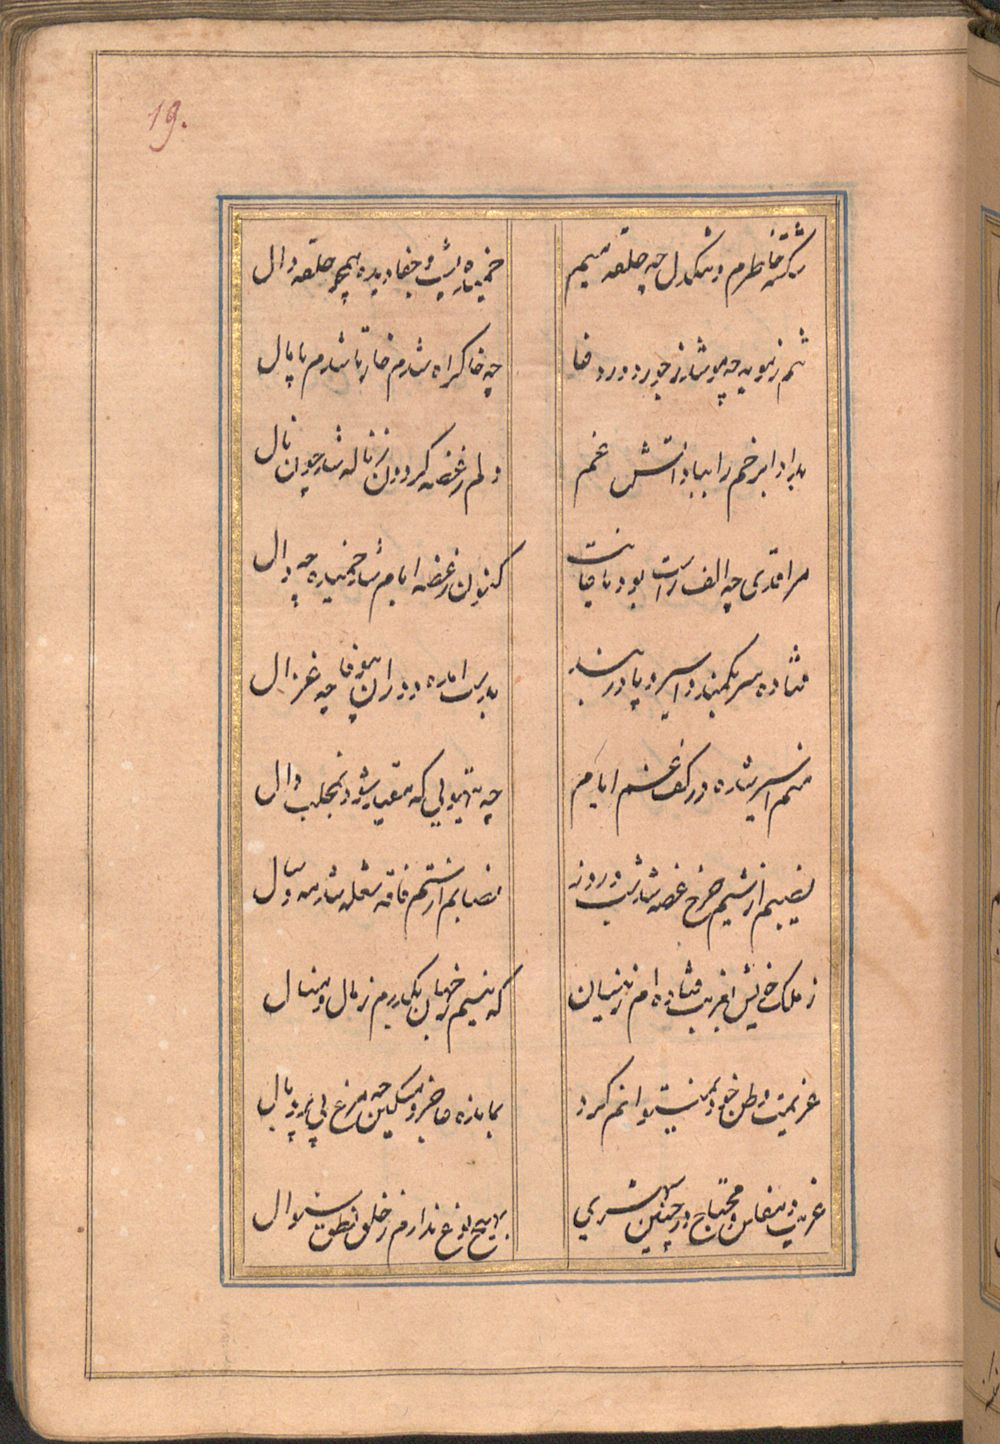 19.
شکسته خاطرم و تنکدل چه حلقه میم
خمیده پشت و جفا دیده همچو حلقه دال
تنم ز مویه چه مو شد ز جور دور قضا
چه خاک راه شدم خار تا شدم پامال
بداد ابر خم را بباد اتش غم
دلم ز غصه کردون ز ناله شد چون نال
مرا قدی چه الف راست بود تا
کنون ز غصه ایام شد خمیده چه دال
فتاده سر بکمند و اسیر و پا در بند
بدست دوران بیوفا چه غزال
منم اسیر شده در کف غم ایام
چه که مقید شود بمخلب دال
نصیبم از ستم چرخ غصه شد شب و روز
نصابم از ستم فاقه شعله شد مه و سال
ز ملک خویش بغربت فتاده ام ز زمان
که نیستم ز جهان یک درم ز مال و منال
عزیمت وطن خود نمیتوانم کرد
بمانده عاجز و مسکین چه مرغ بی پر و بال
غریب و مفلس و محتاج در چنین شهری
بهیچ نوع ندارم ز خلق نطق سئوال